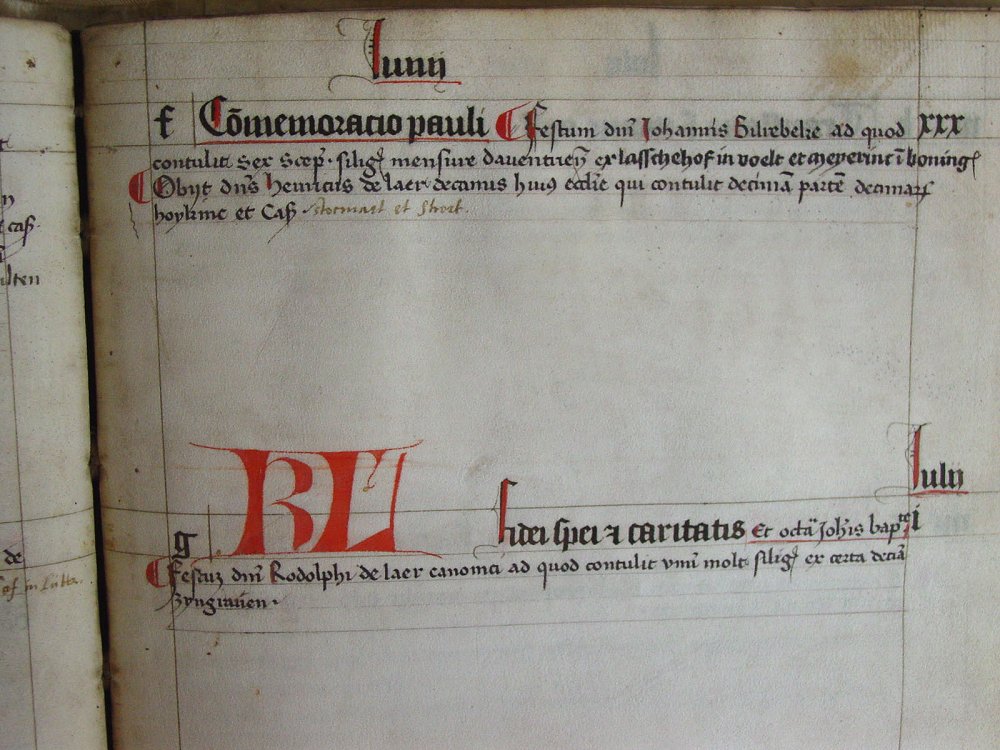 Junij
f Cōmemoracio pauli Festum dn̄i Johannis Bilrebeke ad quod xxx
contulit sex scep̄. siliḡ mensure dauentrien̄ ex lasschehof in voelt et meyerinc ī koning
Obijt dn̄s Henricus de laer decanus huiꝰ eccl̄ie qui contulit decimā partē decimaꝝ
hoykinc et Caſ
Julij
g KL fidei spei ⁊ caritatis Et octā Joh̄is bapte i
Festuꝫ dn̄i Rodolphi de laer canonici ad quod contulit vnū molt siliḡ ex certa decīā
zyngrauen.
de